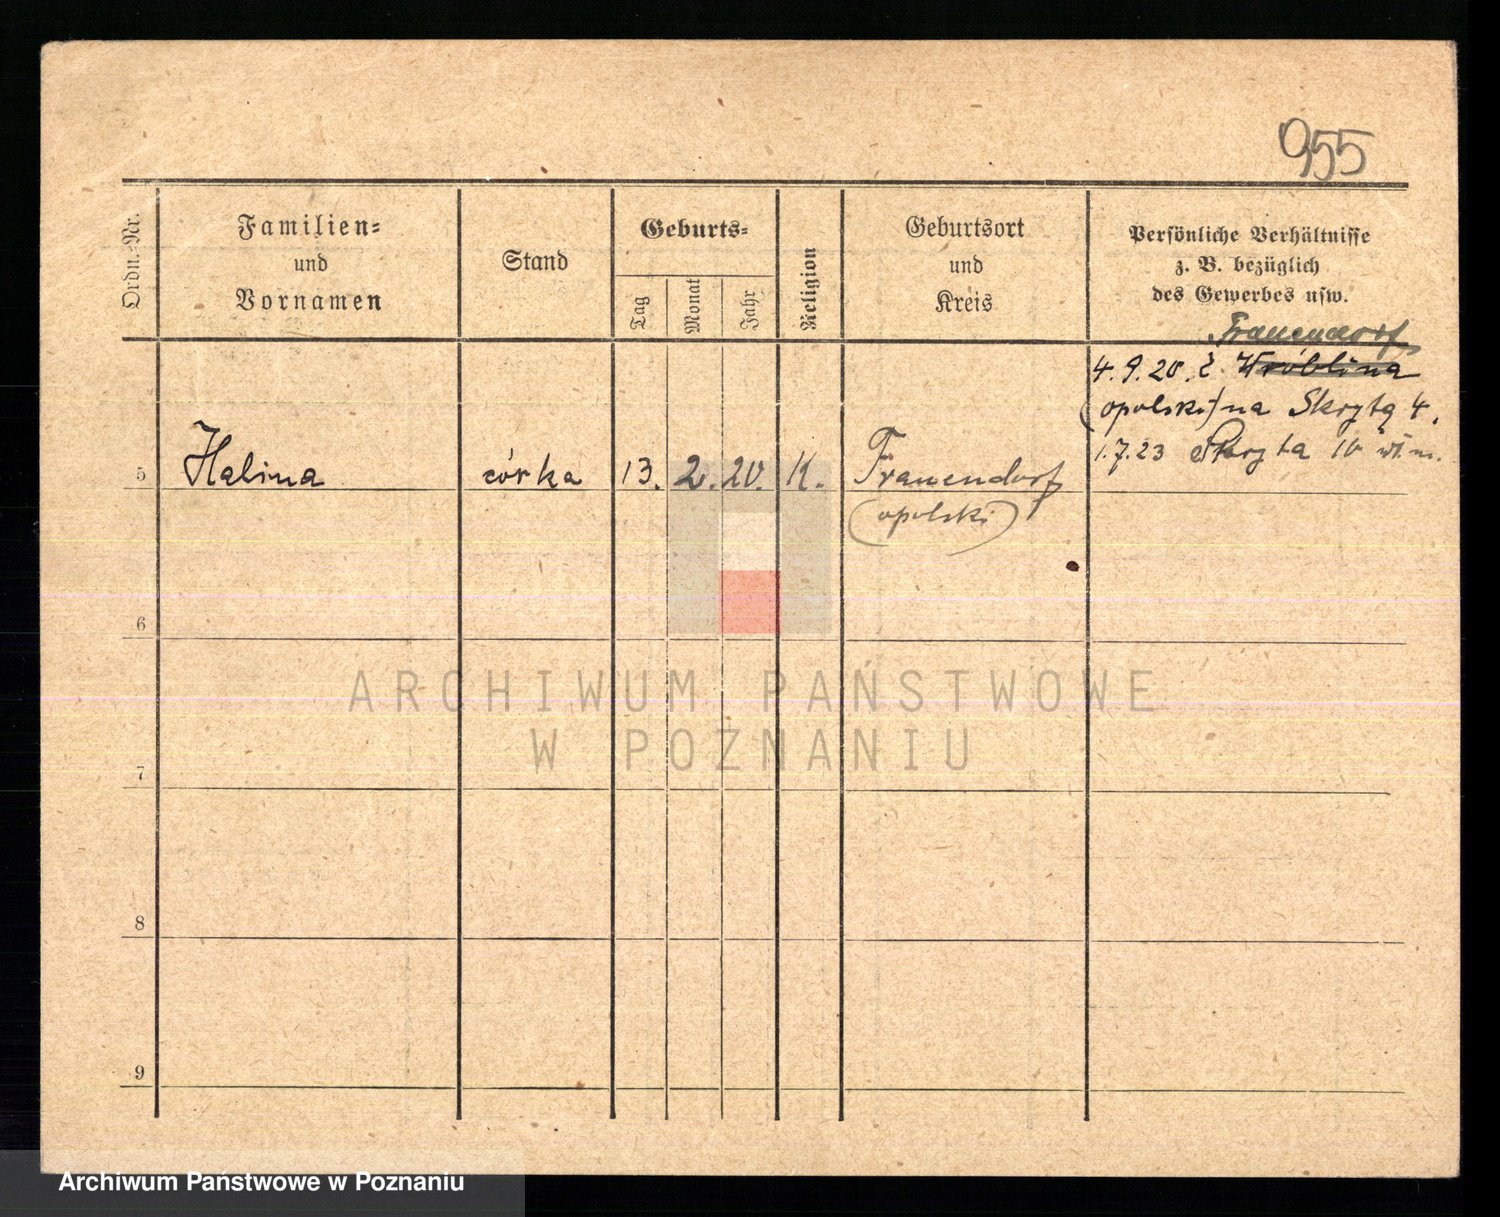 955
Ordn.-Nr.
Familien=
und
Vornamen
Stand
Geburts=
Tag
Monat
Jahr
Religion
Geburtsort
und
Kreis
Persönliche Verhältnisse
z. B. bezüglich
des Gewerbes usw.
Frauendorf
4.9.20. z Wróblina
(opolski) na Skrytą 4.
1.7.23 Skryta 10
5 Halina córka 13. 2. 20. K. Frauendorf
(opolski)
6
7
8
9
ARCHIWUM PAŃSTWOWE
W POZNANIU
Archiwum Państwowe w Poznaniu